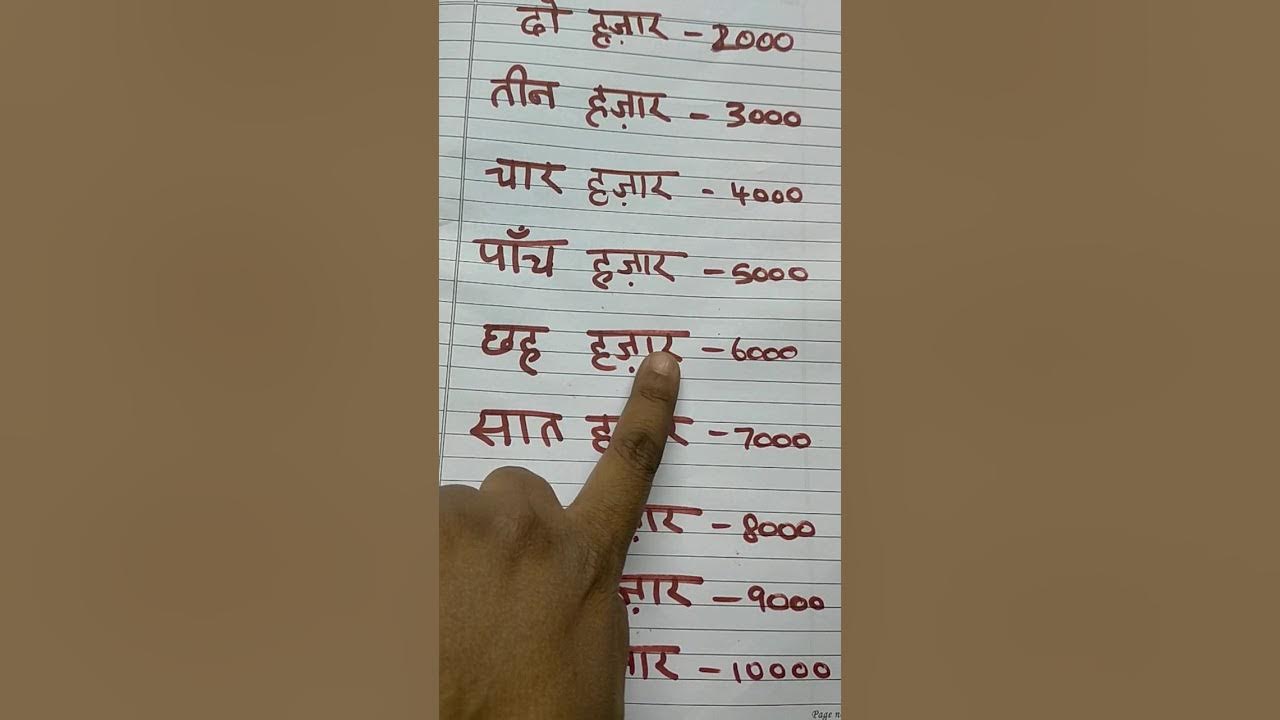 दो हज़ार - 2000
तीन हज़ार - 3000
चार हज़ार - 4000
पाँच हज़ार - 5000
छह हज़ार - 6000
सात - 7000
- 8000
- 9000
- 10000
Page